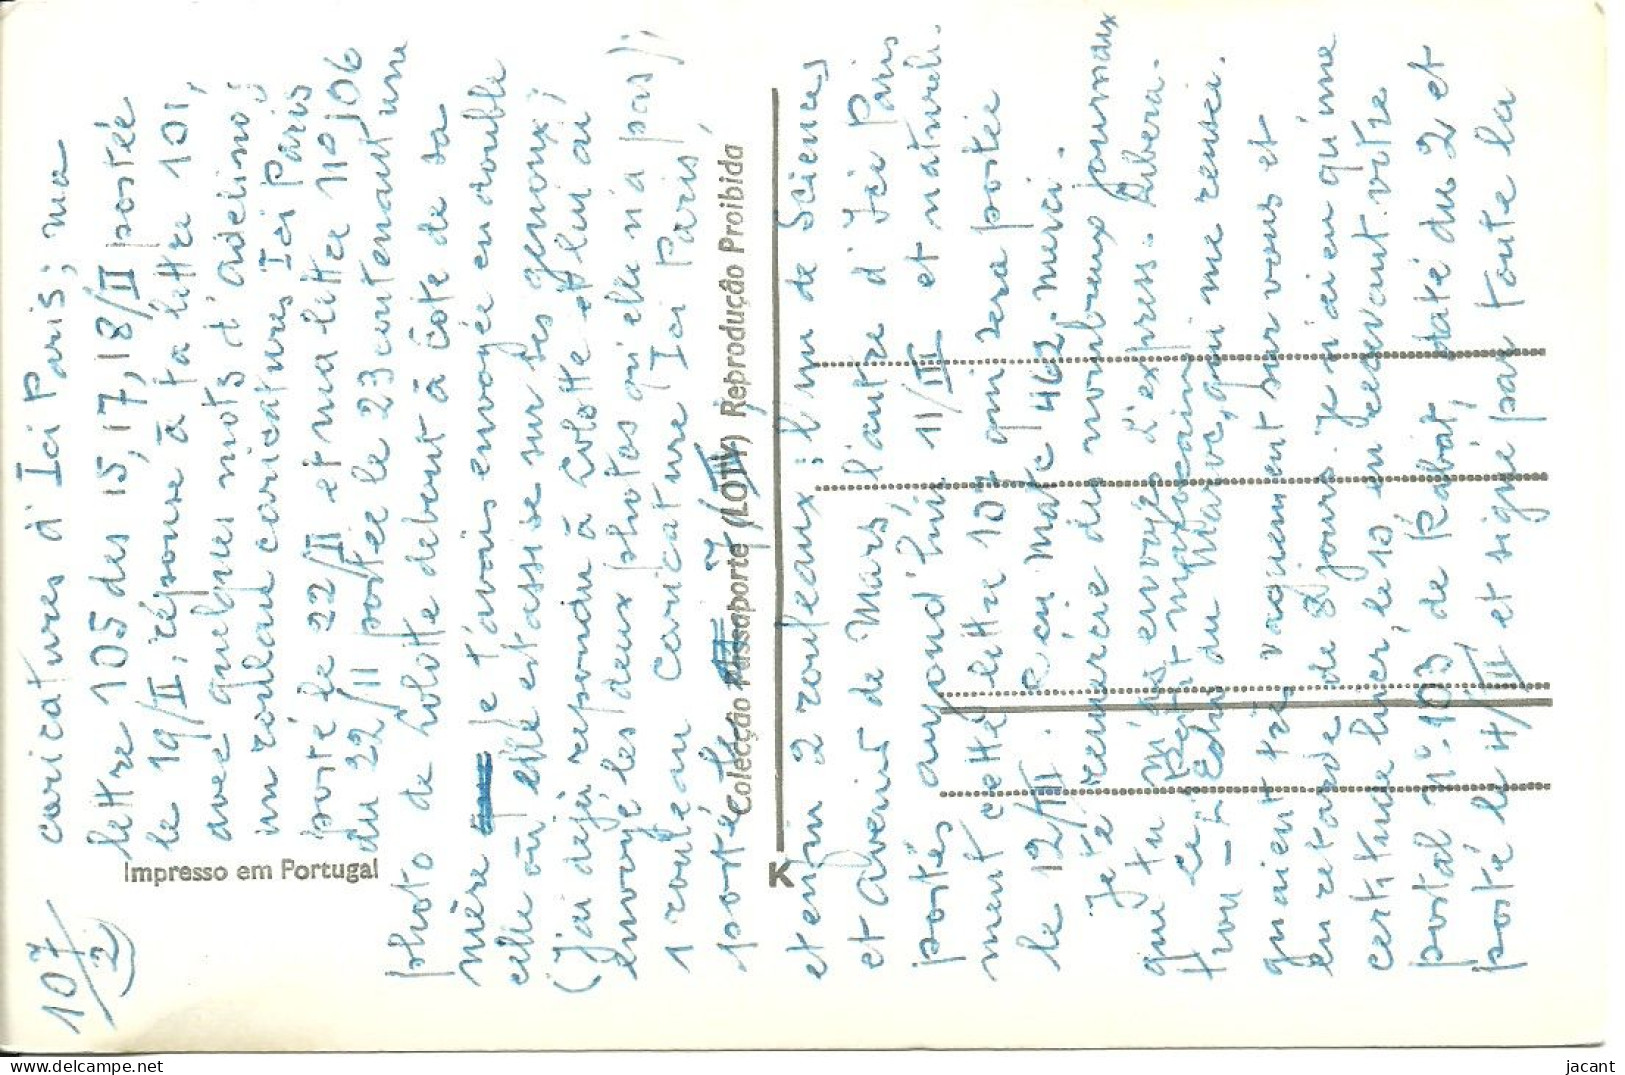 107/2
caricatures d'Ici Paris; ma
lettre 105 des 15, 17, 18/II postée
le 19/II, réponse à ta lettre 101,
avec quelques mots d'
un rouleau caricatures Ici Paris
posté le 22/II et ma lettre no 106
du 22/II postée le 23 contenant une
photo de Colotte debout à côté de sa
mère je t'avais envoyée en double
celle où elle est assise sur ses genoux;
(j'ai déjà répondu à Colotte et lui ai
envoyé les deux photos qu'elle n'a pas);
1 rouleau caricature Ici Paris,
posté le 7/III,
et enfin 2 rouleaux: l'un de Sciences
et Avenir de Mars, l'autre d'Ici Paris
postés aujourd'hui 11/III et naturelle.
ment cette lettre 107 qui sera postée
le 12/III. Reçu Match 462. Merci.
Je te remercie des nombreux journaux
que tu m'as envoyés d'express. Libéra-
tion et Petit marocain
ce du Maroc, qui me rensei.
gnaient très vaguement sur vous et
en retard de 8 jours. Je n'ai eu qu'une
certitude hier, le 10 en recevant votre
postal no 103 de Rabat, daté du 2 et
posté le 4/III et signé par toute la
Impresso em Portugal
Colecção Passaporte (LOTY) Reprodução Proibida
K
jacant